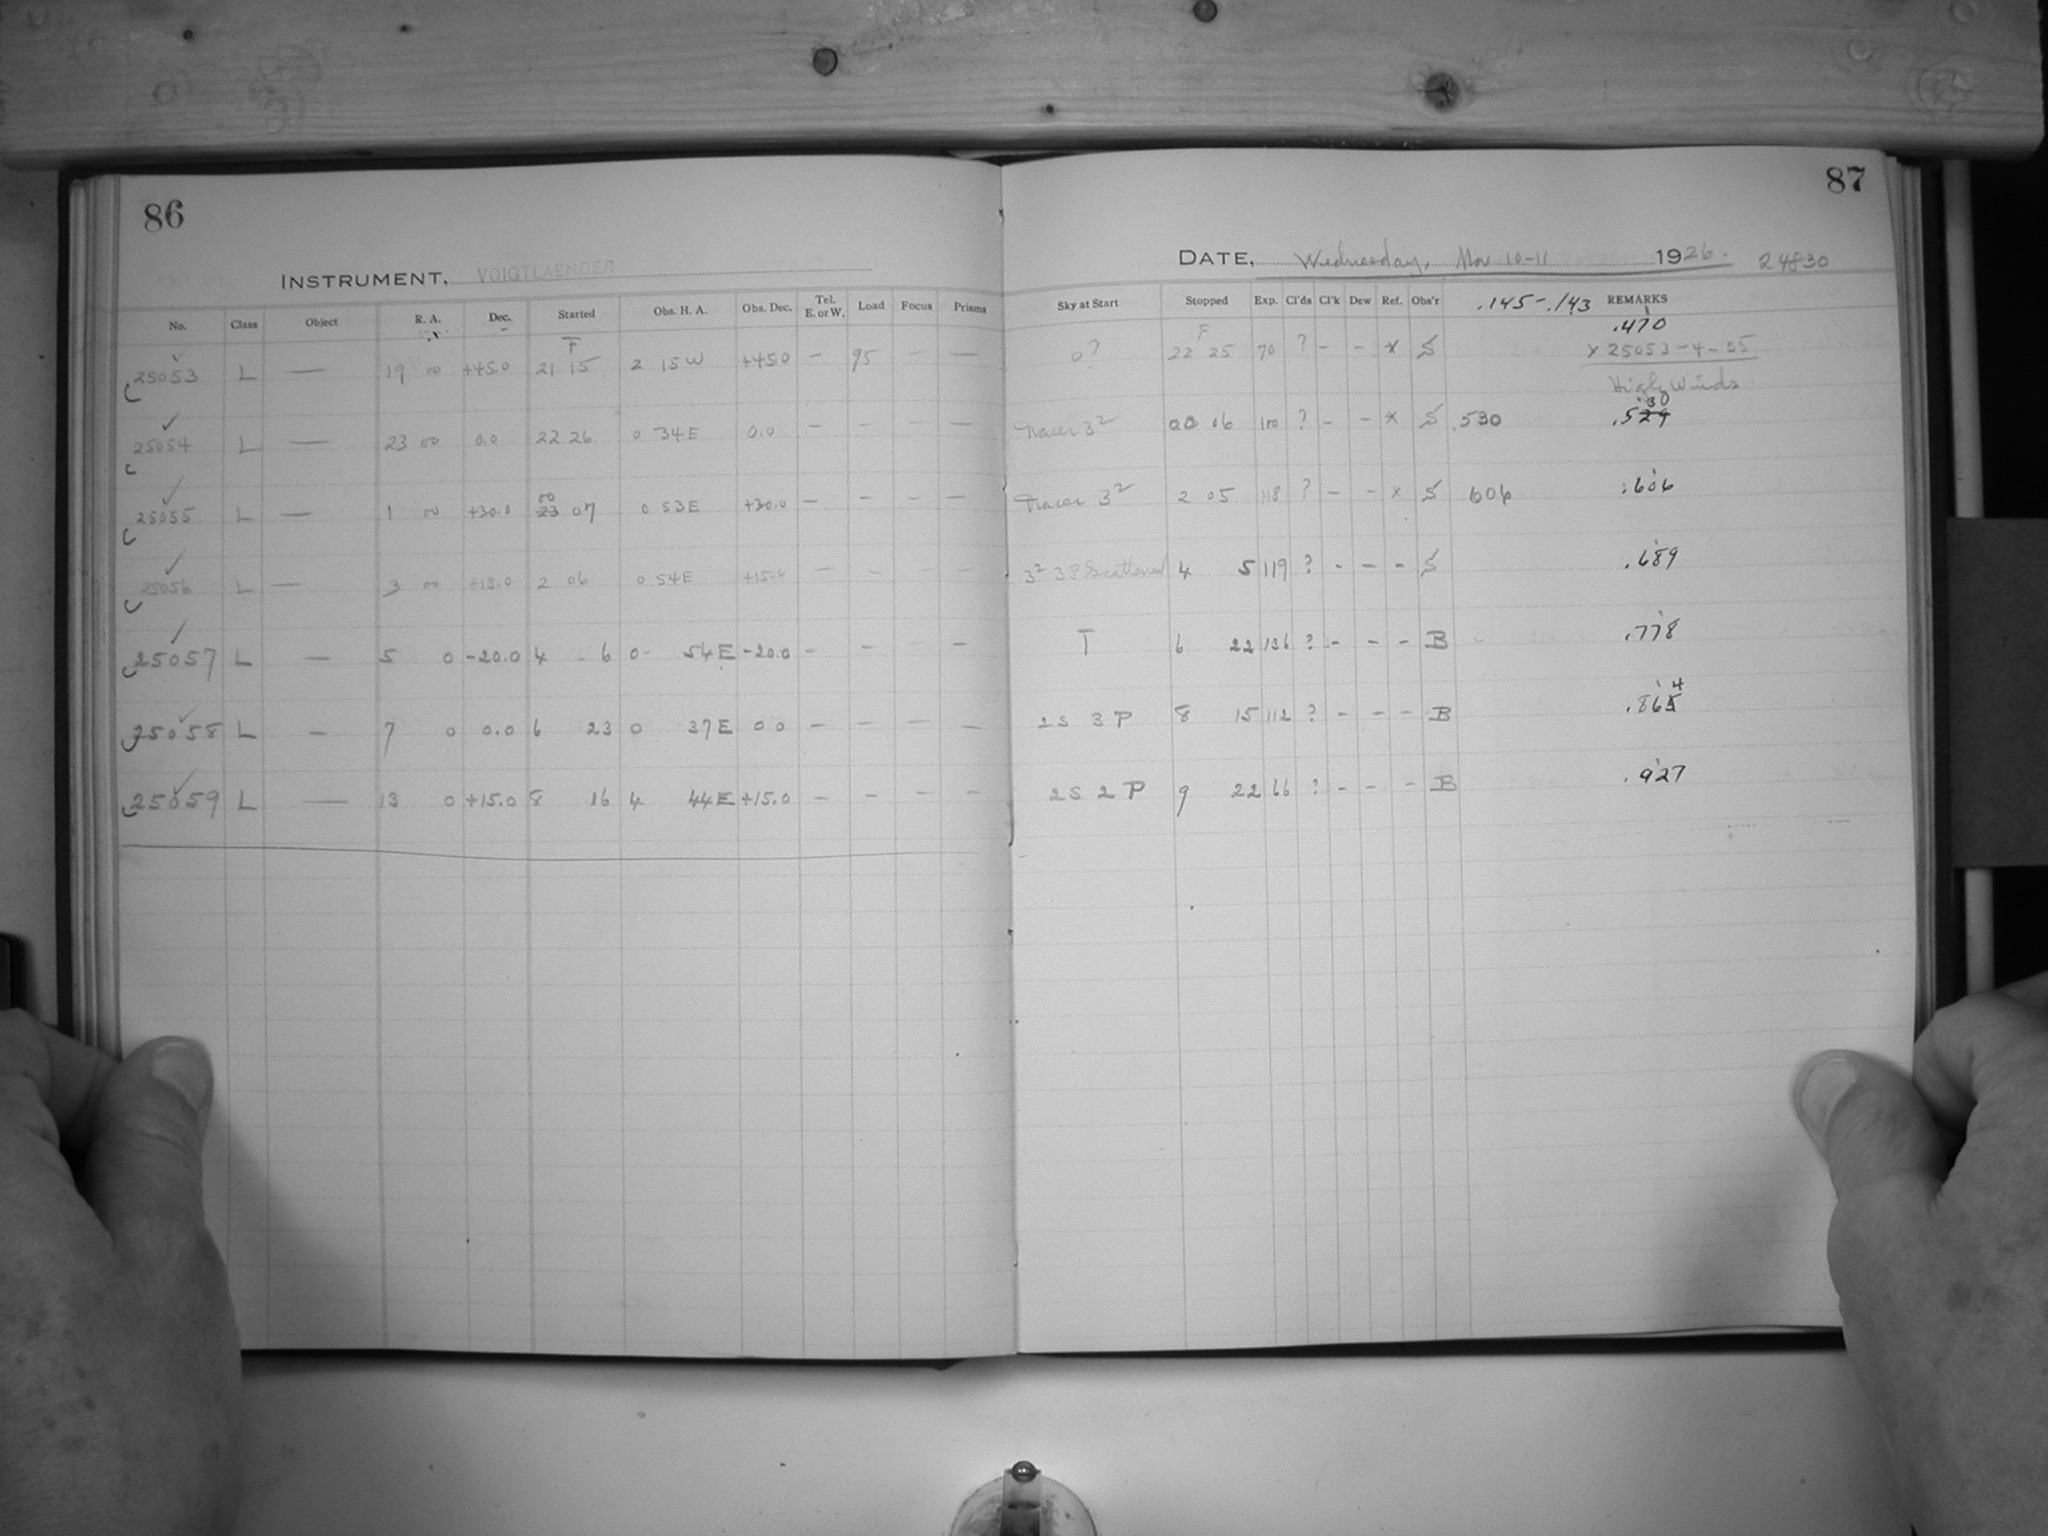 86
INSTRUMENT, VOIGTLAENDER
No. Class Object R. A. Dec. Started Obs. H. A. Obs. Dec. Tel. E. or W. Load Focus Prisms
F
25053 L — 19 00 +45.0 21 15 2 15 W +45.0 — 95 — —
25054 L — 23 00 0.0 22 26 0 34 E 0.0 — — — —
00
25055 L — 1 00 +30.0 23 07 0 53 E +30.0 — — — —
25056 L — 3 00 +15.0 2 06 0 54 E +15.0 — — — —
25057 L — 5 0 -20.0 4 6 0 54 E -20.0 — — — —
25058 L — 7 0 0.0 6 23 0 37 E 0 0 — — — —
25059 L — 13 0 +15.0 8 16 4 44 E +15.0 — — — —
87
DATE, Wednesday, Nov 10-11 1926. 24830
Sky at Start Stopped Exp. Cl'ds Cl'k Dew Ref. Obs'r .145-.143 REMARKS
F .470
0? 22 25 70 ? - - x S x 25053-4-55
High Winds.
30
Traces 3² 00 06 100 ? - - x S .530 .529
Traces 3² 2 05 118 ? - - x S 606 .606
3² 3P Scattered 4 5 119 ? - - - S .689
T 6 22 136 ? - - - B .778
4
2S 3P 8 15 112 ? - - - B .865
2S 2P 9 22 66 ? - - - B .927